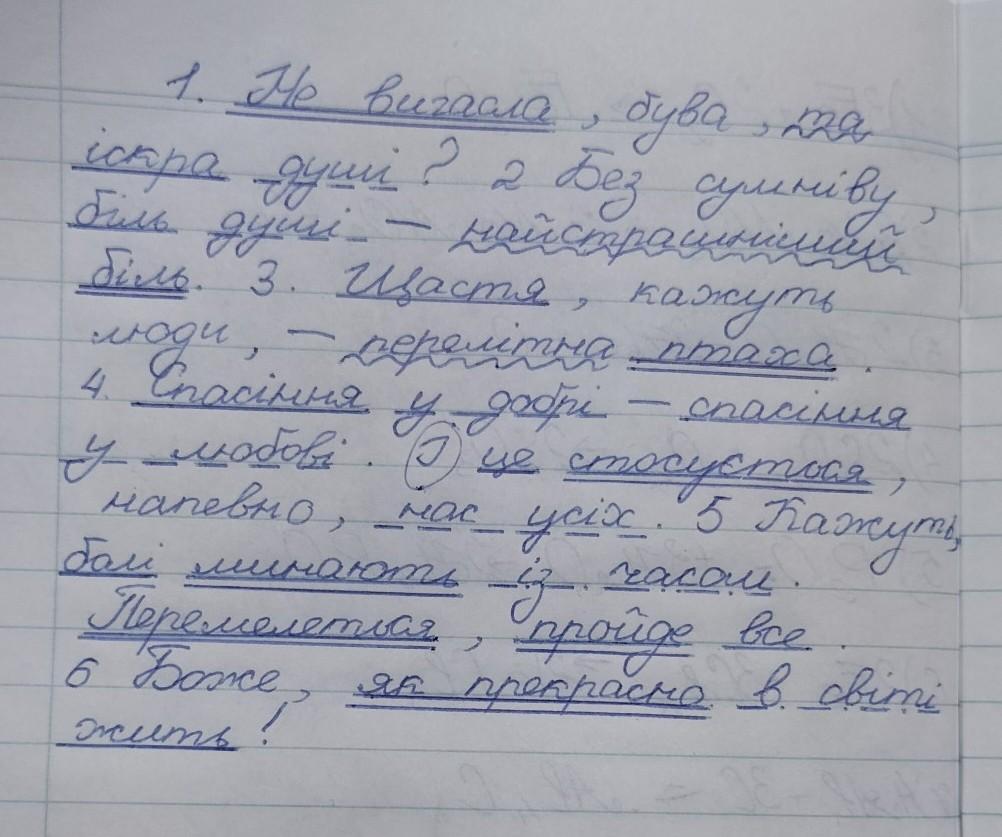 1. Не вигасла, бува, та
іскра душі? 2 Без сумніву,
біль душі – найстрашніший
біль. 3. Щастя, кажуть
люди, – перелітна птаха.
4. Спасіння у добрі – спасіння
у любові. І це стосується,
напевно, нас усіх. 5 Кажуть,
болі минають із часом.
Перемелеться, пройде все.
6 Боже, як прекрасно в світі
жить!